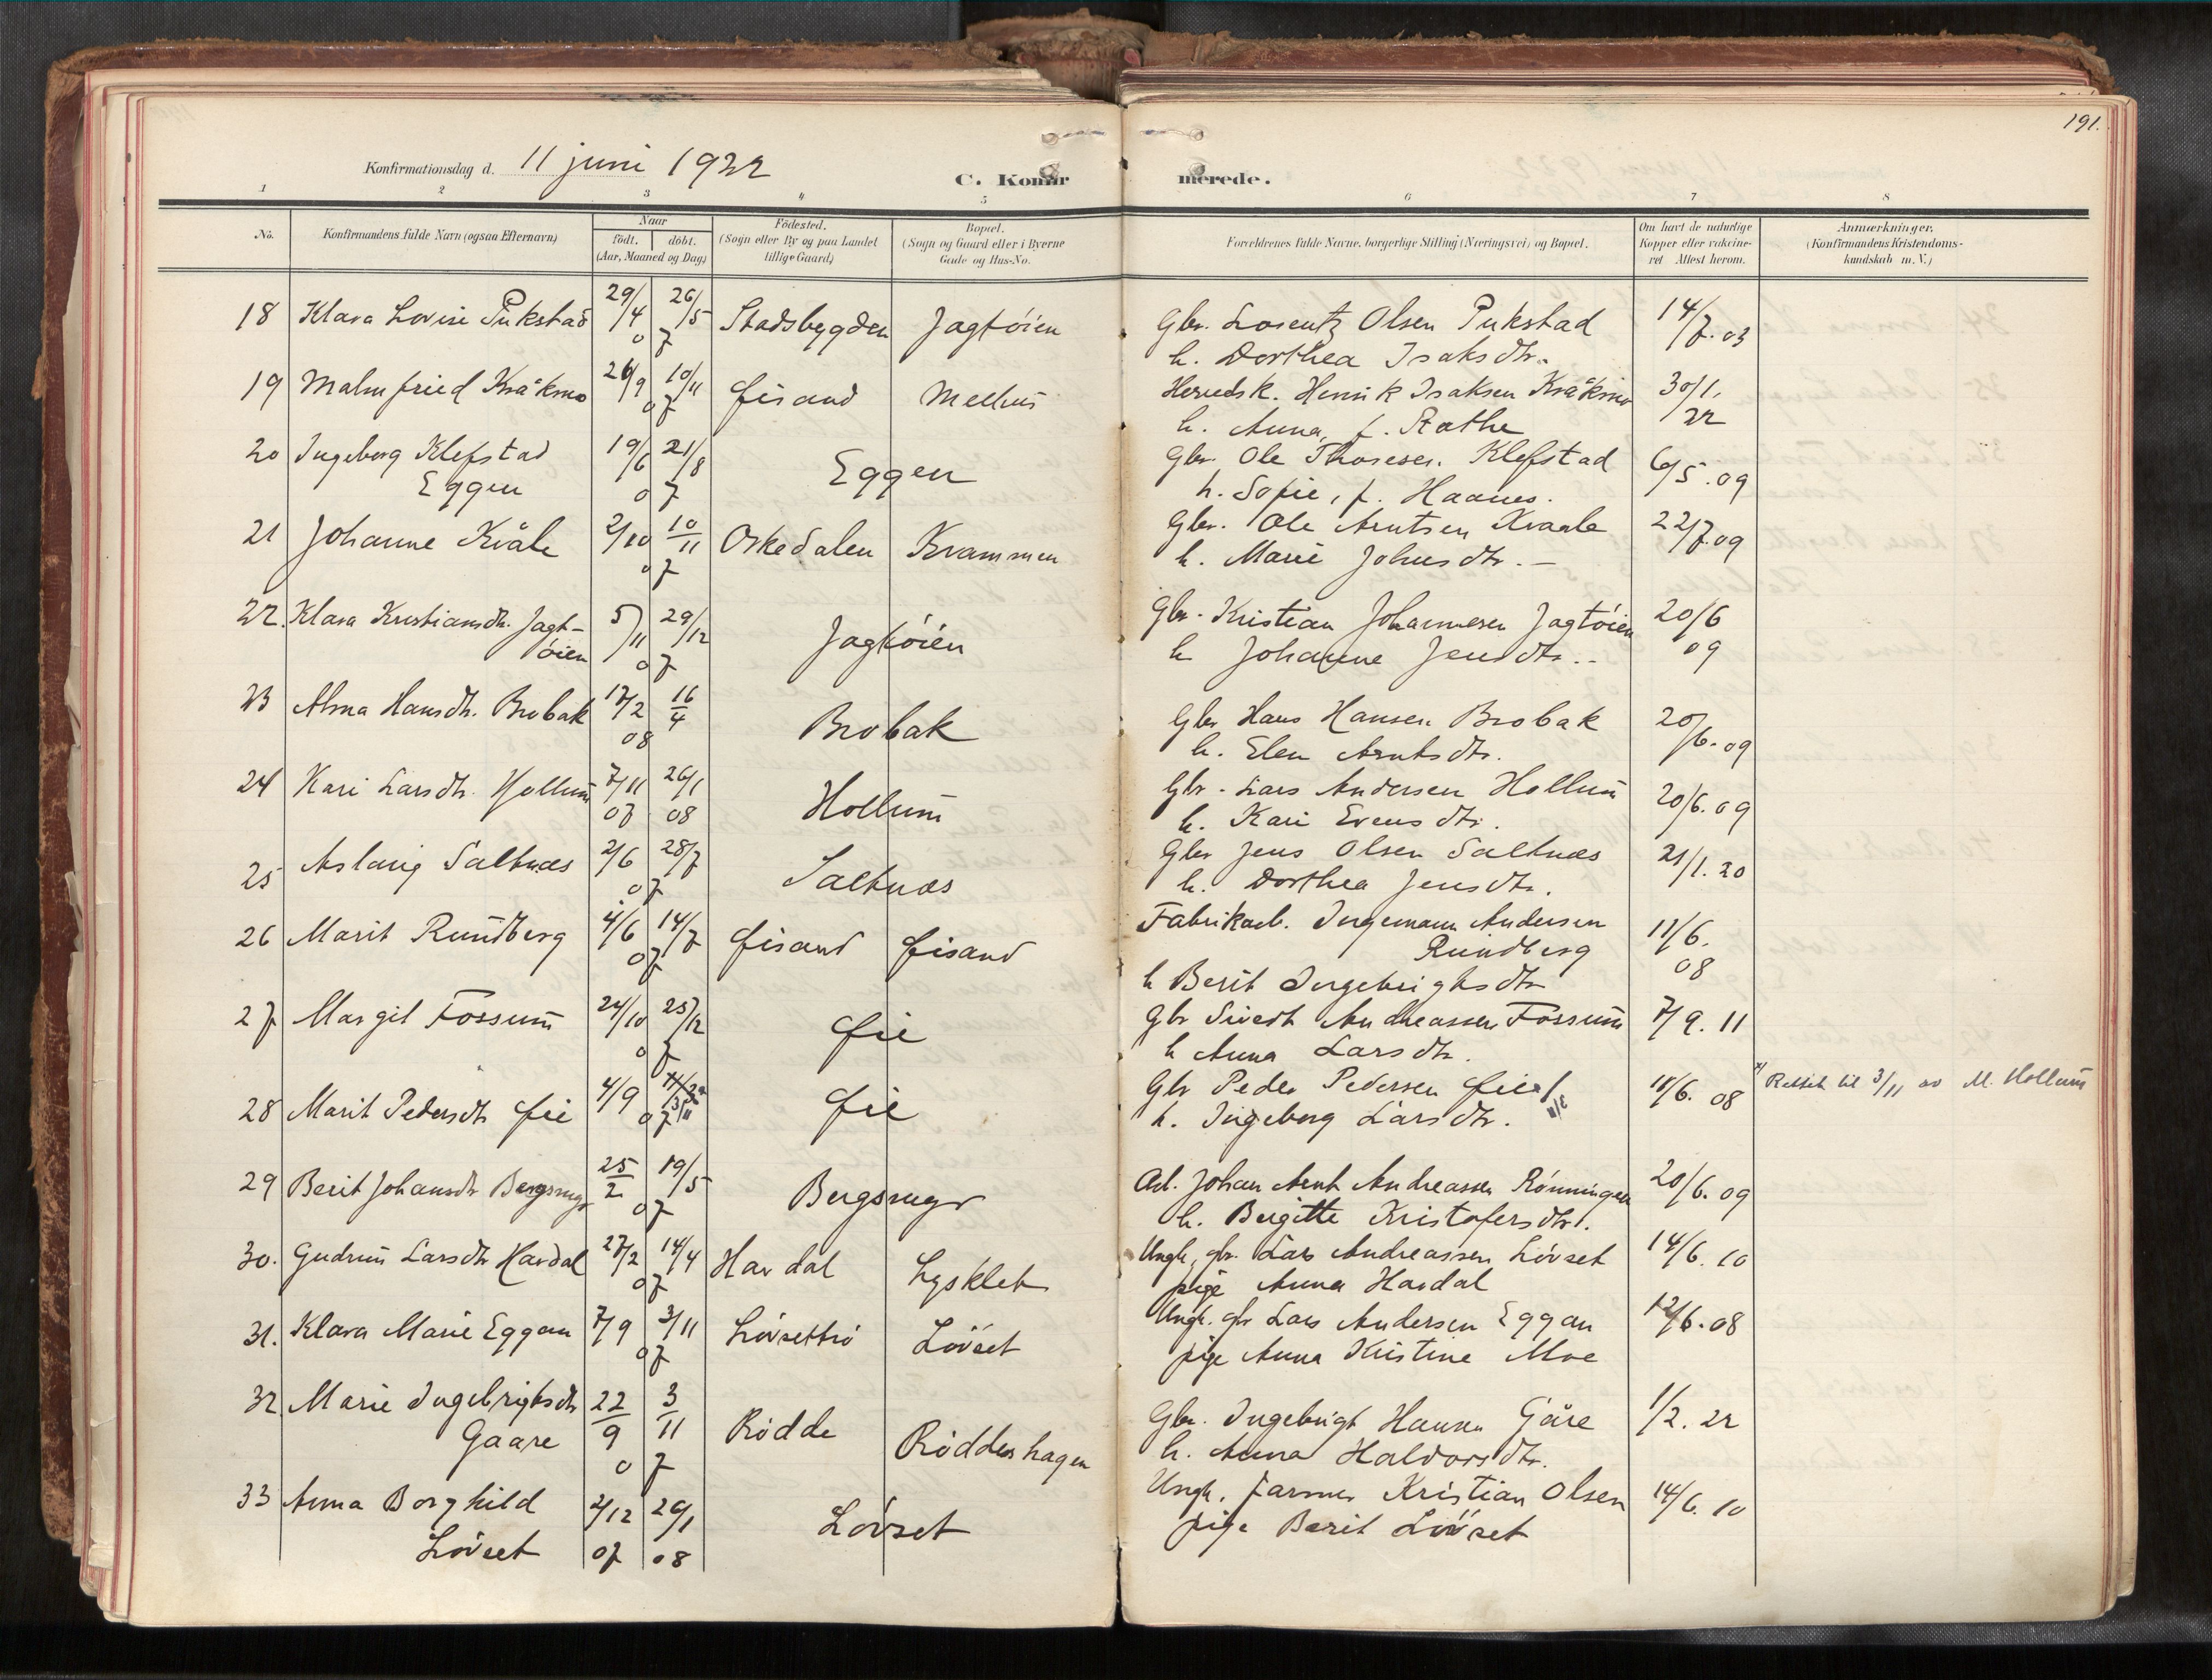 191.
Konfirmationsdag d. 11 juni 1922
C. Konfir merede.
1 2 3 4 5 6 7 8
No. Konfirmandens fulde Navn (ogsaa Efternavn) Naar födt. döbt. (Aar, Maaned og Dag) Födested. (Sogn eller By og paa Landet tillige Gaard) Bopæl. (Sogn og Gaard eller i Byerne Gade og Hus-No. Forældrenes fulde Navne, borgerlige Stilling (Næringsvei) og Bopæl. Om havt de naturlige Kopper eller vakcineret Attest herom. Anmærkninger. (Konfirmandens Kristendomskundskab m. V.)
18 Klara Lovise Pukstad 29/4 26/5 Stadsbygden Jagtöien Gbr. Lorentz Olsen Pukstad 14/7.03
07 h. Dorthea Isaksdtr.
19 Malmfried Kråkmo 26/9 10/11 Øisand Melhus Heredsk. Henrik Isaksen Kråkmo 30/1.
07 h. Anna, f. Rathe 22
20 Ingeborg Klefstad 19/6 21/8 Eggen Gbr. Ole Thoresen Klefstad 6/5.09
Eggen 07 h. Sofie, f. Haanes.
21 Johanne Kvåle 2/10 10/11 Oskedalen Kvammen Gbr. Ole Arntsen Kvaale 22/7.09
07 h. Marie Johnsdtr. —
22. Klara Kristiansdtr. Jagt- 5/11 29/12 Jagtöien Gbr. Kristian Johannesen Jagtöien 20/6
öien 07 h Johanne Jensdtr. 09
23 Alma Hansdtr. Brobak 17/2 16/4 Brobak Gbr Hans Hansen Brobak 20/6.09
08 h. Elen Arntsdtr.
24 Kari Larsdtr. Hollum 7/11 26/1 Hollum Gbr. Lars Andersen Hollum 20/6.09
07 08 h. Kari Evensdtr.
25 Aslaug Saltnæs 2/6 28/7 Saltnæs Gbr Jens Olsen Saltnæs 21/1.20
07 h. Dorthea Jensdtr.
26 Marit Rundberg 4/6 14/7 Øisand Øisand Fabrikarb. Ingemann Andersen 11/6.
07 Rundberg 08
h Berit Ingebrigtsdtr
27 Margit Fossum 24/10 25/12 Øie Gbr Sivert Andreassen Fossum 7/9.11
07 h Anna Larsdtr.
28 Marit Pedersdtr Øie 4/9 3/11 Øie Gbr Peder Pedersen Øie 11/6.08 x) Rettet til 3/11 av M. Hollum
07 h. Ingeborg Larsdtr.
29 Berit Johansdtr Bergsrugr 25/2 19/5 Bergsrugr Arb. Johan Arnt Andreassen Rönningen 20/6.09
07 h. Birgitte Kristofersdtr.
30. Gudrun Larsdtr Hardal 27/2 14/4 Hardal Lysklet Ungk, gbr. Lars Andreassen Lövset 14/6.10
07 pige Anna Hardal
31. Klara Marie Eggan 7/9 3/11 Lövsettrö Lövset Ungk. gbr Lars Andersen Eggan 12/6.08
07 pige Anna Kristine Moe
32. Marie Ingebrigtsdtr 22/9 3/11 Rödde Röddeshagen Gbr. Ingebrigt Hansen Gåre 1/2.22
Gaare 07 h. Anna Haldorsdtr.
33 Anna Borghild 2/12 26/1 Lövset Ungk. farmer Kristian Olsen 14/6.10
Lövset 07 08 pige Berit Lövset